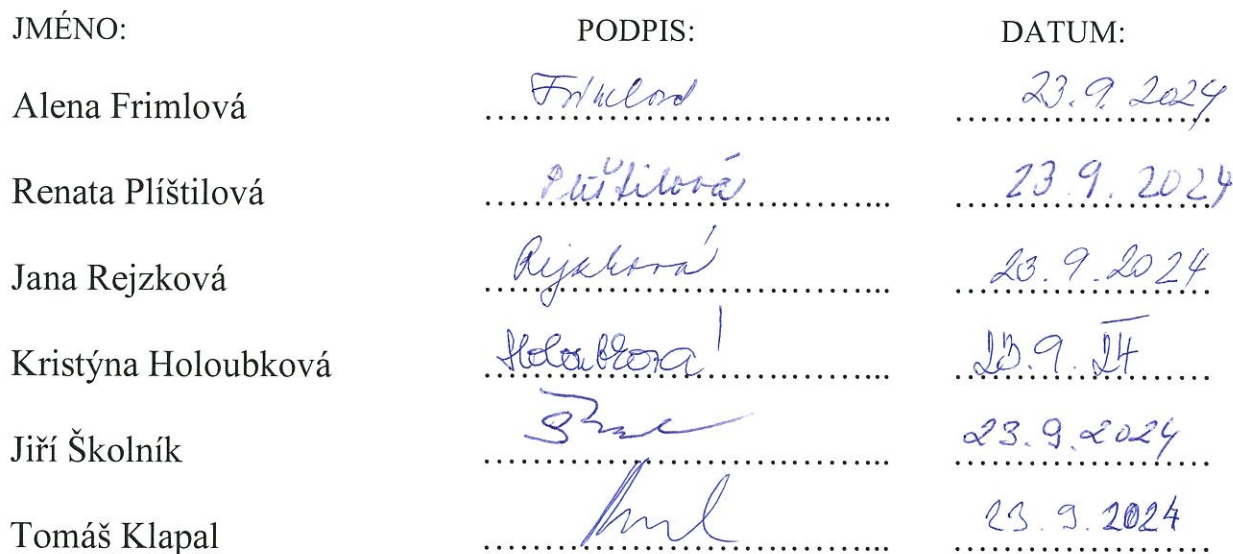 JMÉNO: PODPIS: DATUM:
Alena Frimlová Frimlová 23.9.2024
Renata Plíštilová Plíštilová 23.9.2024
Jana Rejzková Rejzková 23.9.2024
Kristýna Holoubková Holoubková 23.9.24
Jiří Školník 23.9.2024
Tomáš Klapal 23.9.2024